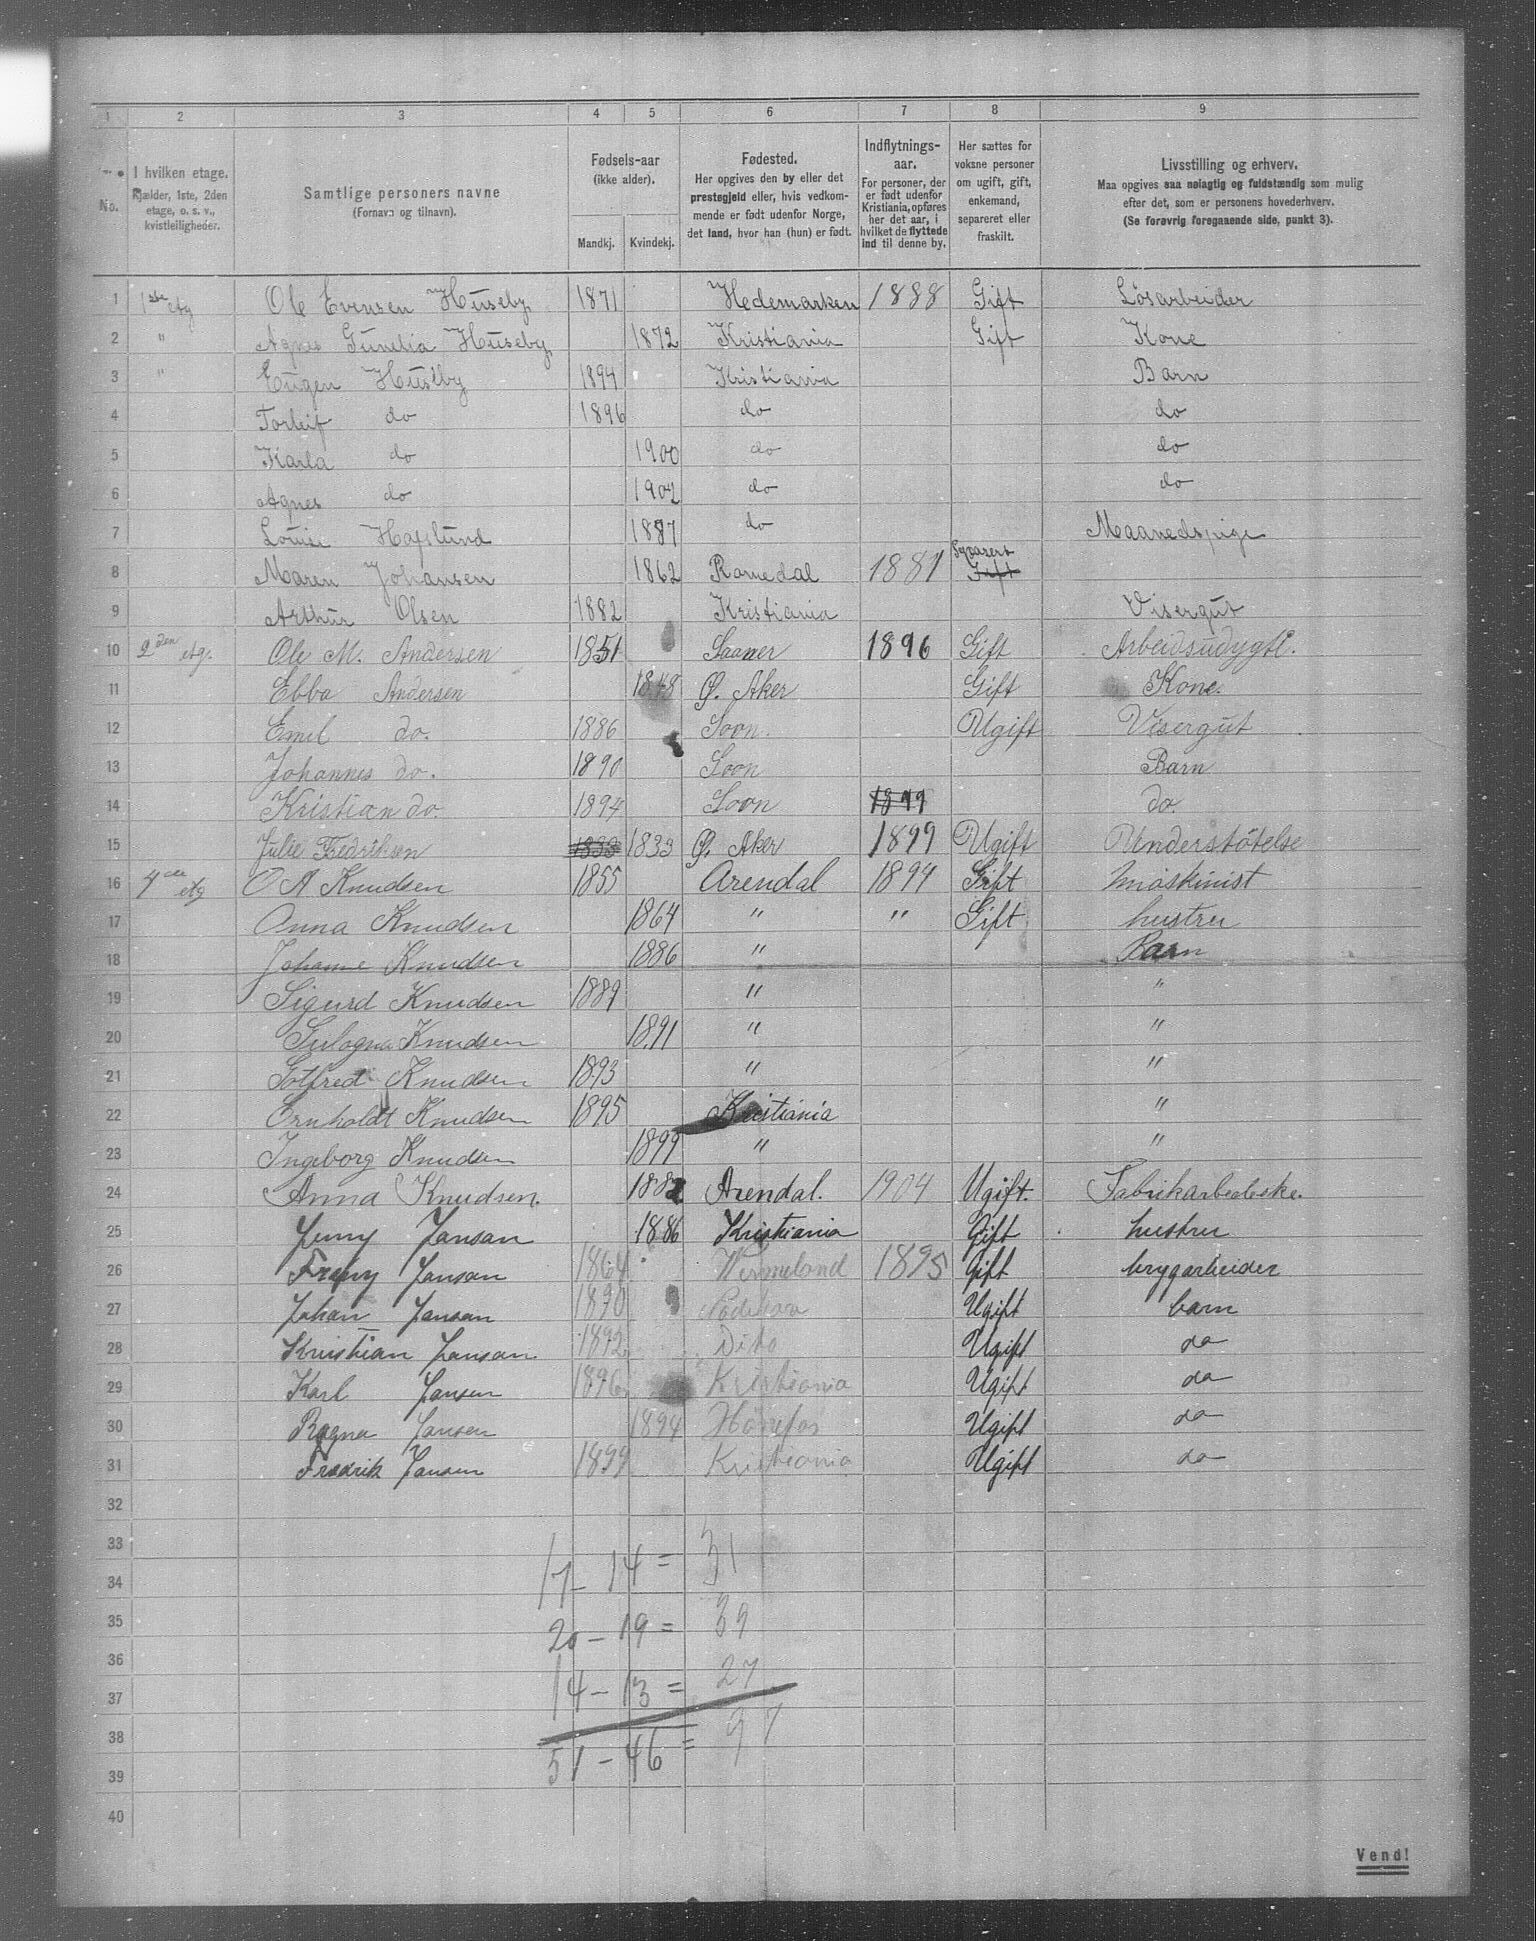 1 2 3 4 5 6 7 8 9
No.
I hvilken etage.
Kjælder, 1ste, 2den
etage, o. s. v.,
kvistleiligheder.
Samtlige personers navne
(Fornavn og tilnavn).
Fødsels-aar
(ikke alder).
Mandkj. Kvindekj.
Fødested.
Her opgives den by eller det
prestegjeld eller, hvis vedkom-
mende er født udenfor Norge,
det land, hvor han (hun) er født.
Indflytnings-
aar.
For personer, der
er født udenfor
Kristiania, opføres
her det aar, i
hvilket de flyttede
ind til denne by.
Her sættes for
voksne personer
om ugift, gift,
enkemand,
separeret eller
fraskilt.
Livsstilling og erhverv.
Maa opgives saa nøiagtig og fuldstændig som mulig
efter det, som er personens hovederhverv.
(Se forøvrig foregaaende side, punkt 3).
1 1ste etg Ole Evensen Huseby 1871 Hedemarken 1888 Gift Løsarbeider
2 " Agnes Gunelia Huseby 1872 Kristiania Gift Kone
3 " Eugen Huseby 1894 Kristiania Barn
4 Torleif do 1896 do do
5 Karla do 1900 do do
6 Agnes do 1902 do do
7 Louise Hafslund 1887 do Maanedspige
8 Maren Johansen 1862 Romedal 1881 Gift
9 Arthur Olsen 1882 Kristiania Visergut
10 2den etg. Ole M. Andersen 1851 Saaner 1896 Gift Arbeidsudygti.
11 Ebba Andersen 1848 Ø. Aker Gift Kone.
12 Emil do. 1886 Soon. Ugift Visergut
13 Johannes do. 1890 Soon Barn
14 Kristian do. 1894 Soon 1899 do.
15 Julie Fredriksen 1833 1833 Ø. Aker 1899 Ugift Understøtelse
16 4de etg O A Knudsen 1855 Arendal 1894 Gift maskinist
17 Anna Knudsen 1864 " " Gift hustru
18 Johanne Knudsen 1886 " Barn
19 Sigurd Knudsen 1889 " "
20 Knudsen 1891 " "
21 Gotfred Knudsen 1893 " "
22 Ørnholdt Knudsen 1895 Kristiania "
23 Ingeborg Knudsen 1899 " "
24 Anna Knudsen. 1882 Arendal. 1904 Ugift. Fabrikarbederske.
25 Jenny Jansan 1886 Kristiania Gift hustru
26 Jansan 1864 Wermeland 1895 Gift brygarbeider
27 Johan Jansan 1890 Ugift barn
28 Kristian Jansan 1892 Dito Ugift do
29 Karl Jansen 1896 Kristiania Ugift do
30 Ragna Jansen 1894 Hønefos Ugift do
31 Fredrik Jansen 1899 Kristiania Ugift do
32
33
17 - 14 = 31
34
35
20 - 19 = 39
36
37
14 - 13 = 27
38
51 - 46 = 97
39
40
Vend!